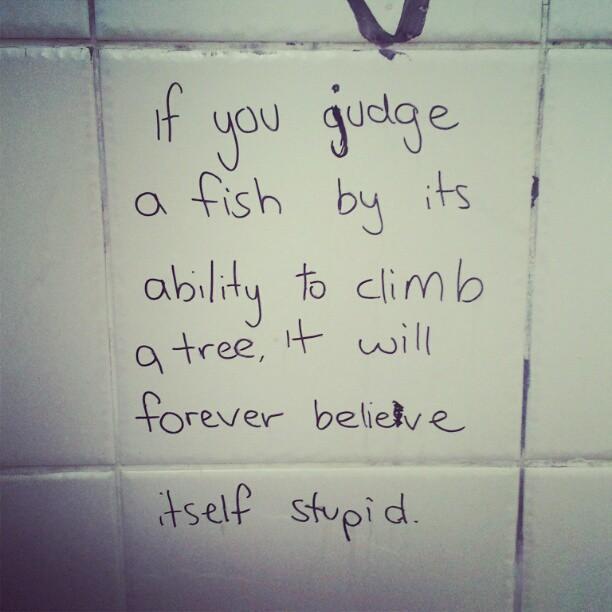 If you judge
a fish by its
ability to climb
a tree, It will
forever believe
itself stupid.